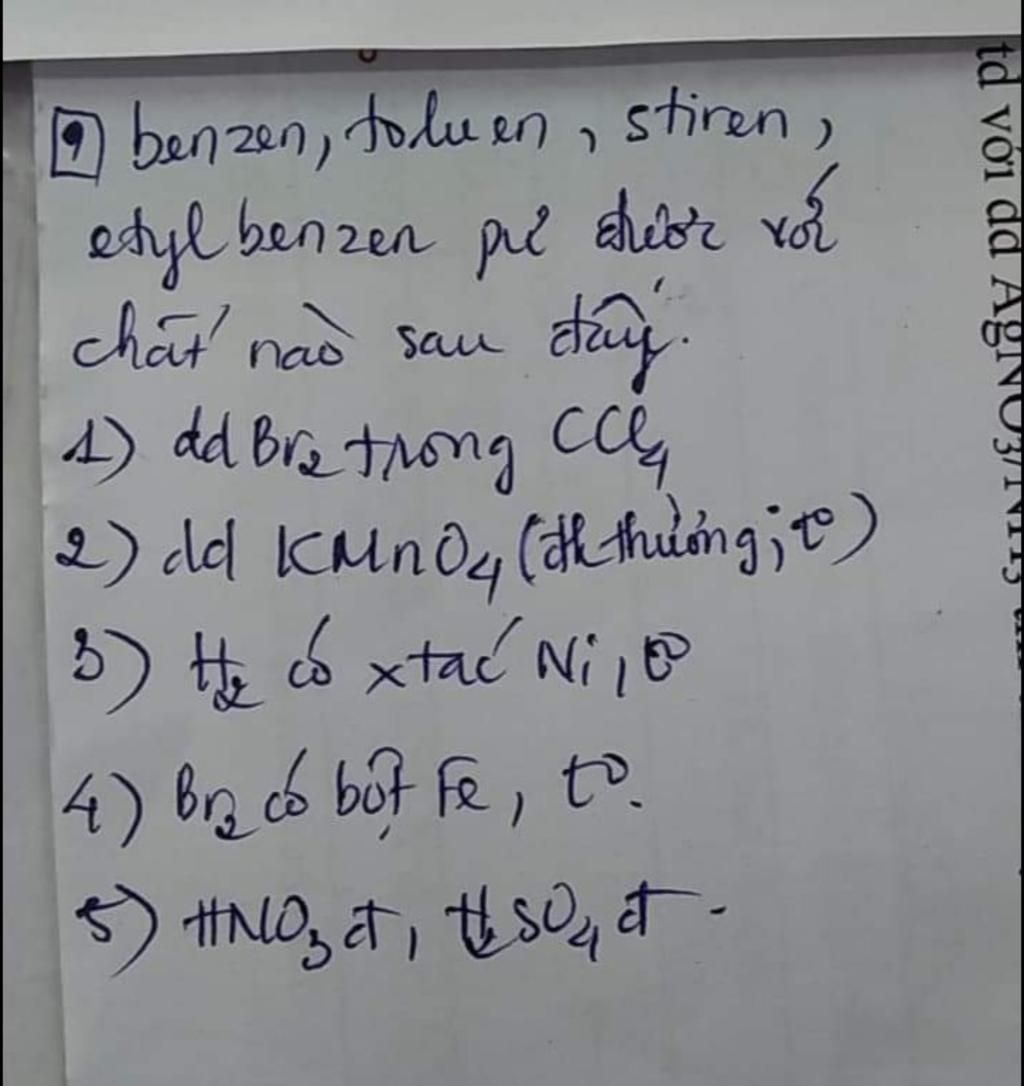 9 benzen, toluen, stiren,
etylbenzen pư được với
chất nào sau đây.
1) dd Br2 trong CCl4
2) dd KMnO4 (đk thường; t°)
3) H2 có xtác Ni, t°
4) Br2 có bột Fe, t°.
5) HNO3 đ, H2SO4 đ.
td với dd AgNO3/NH3